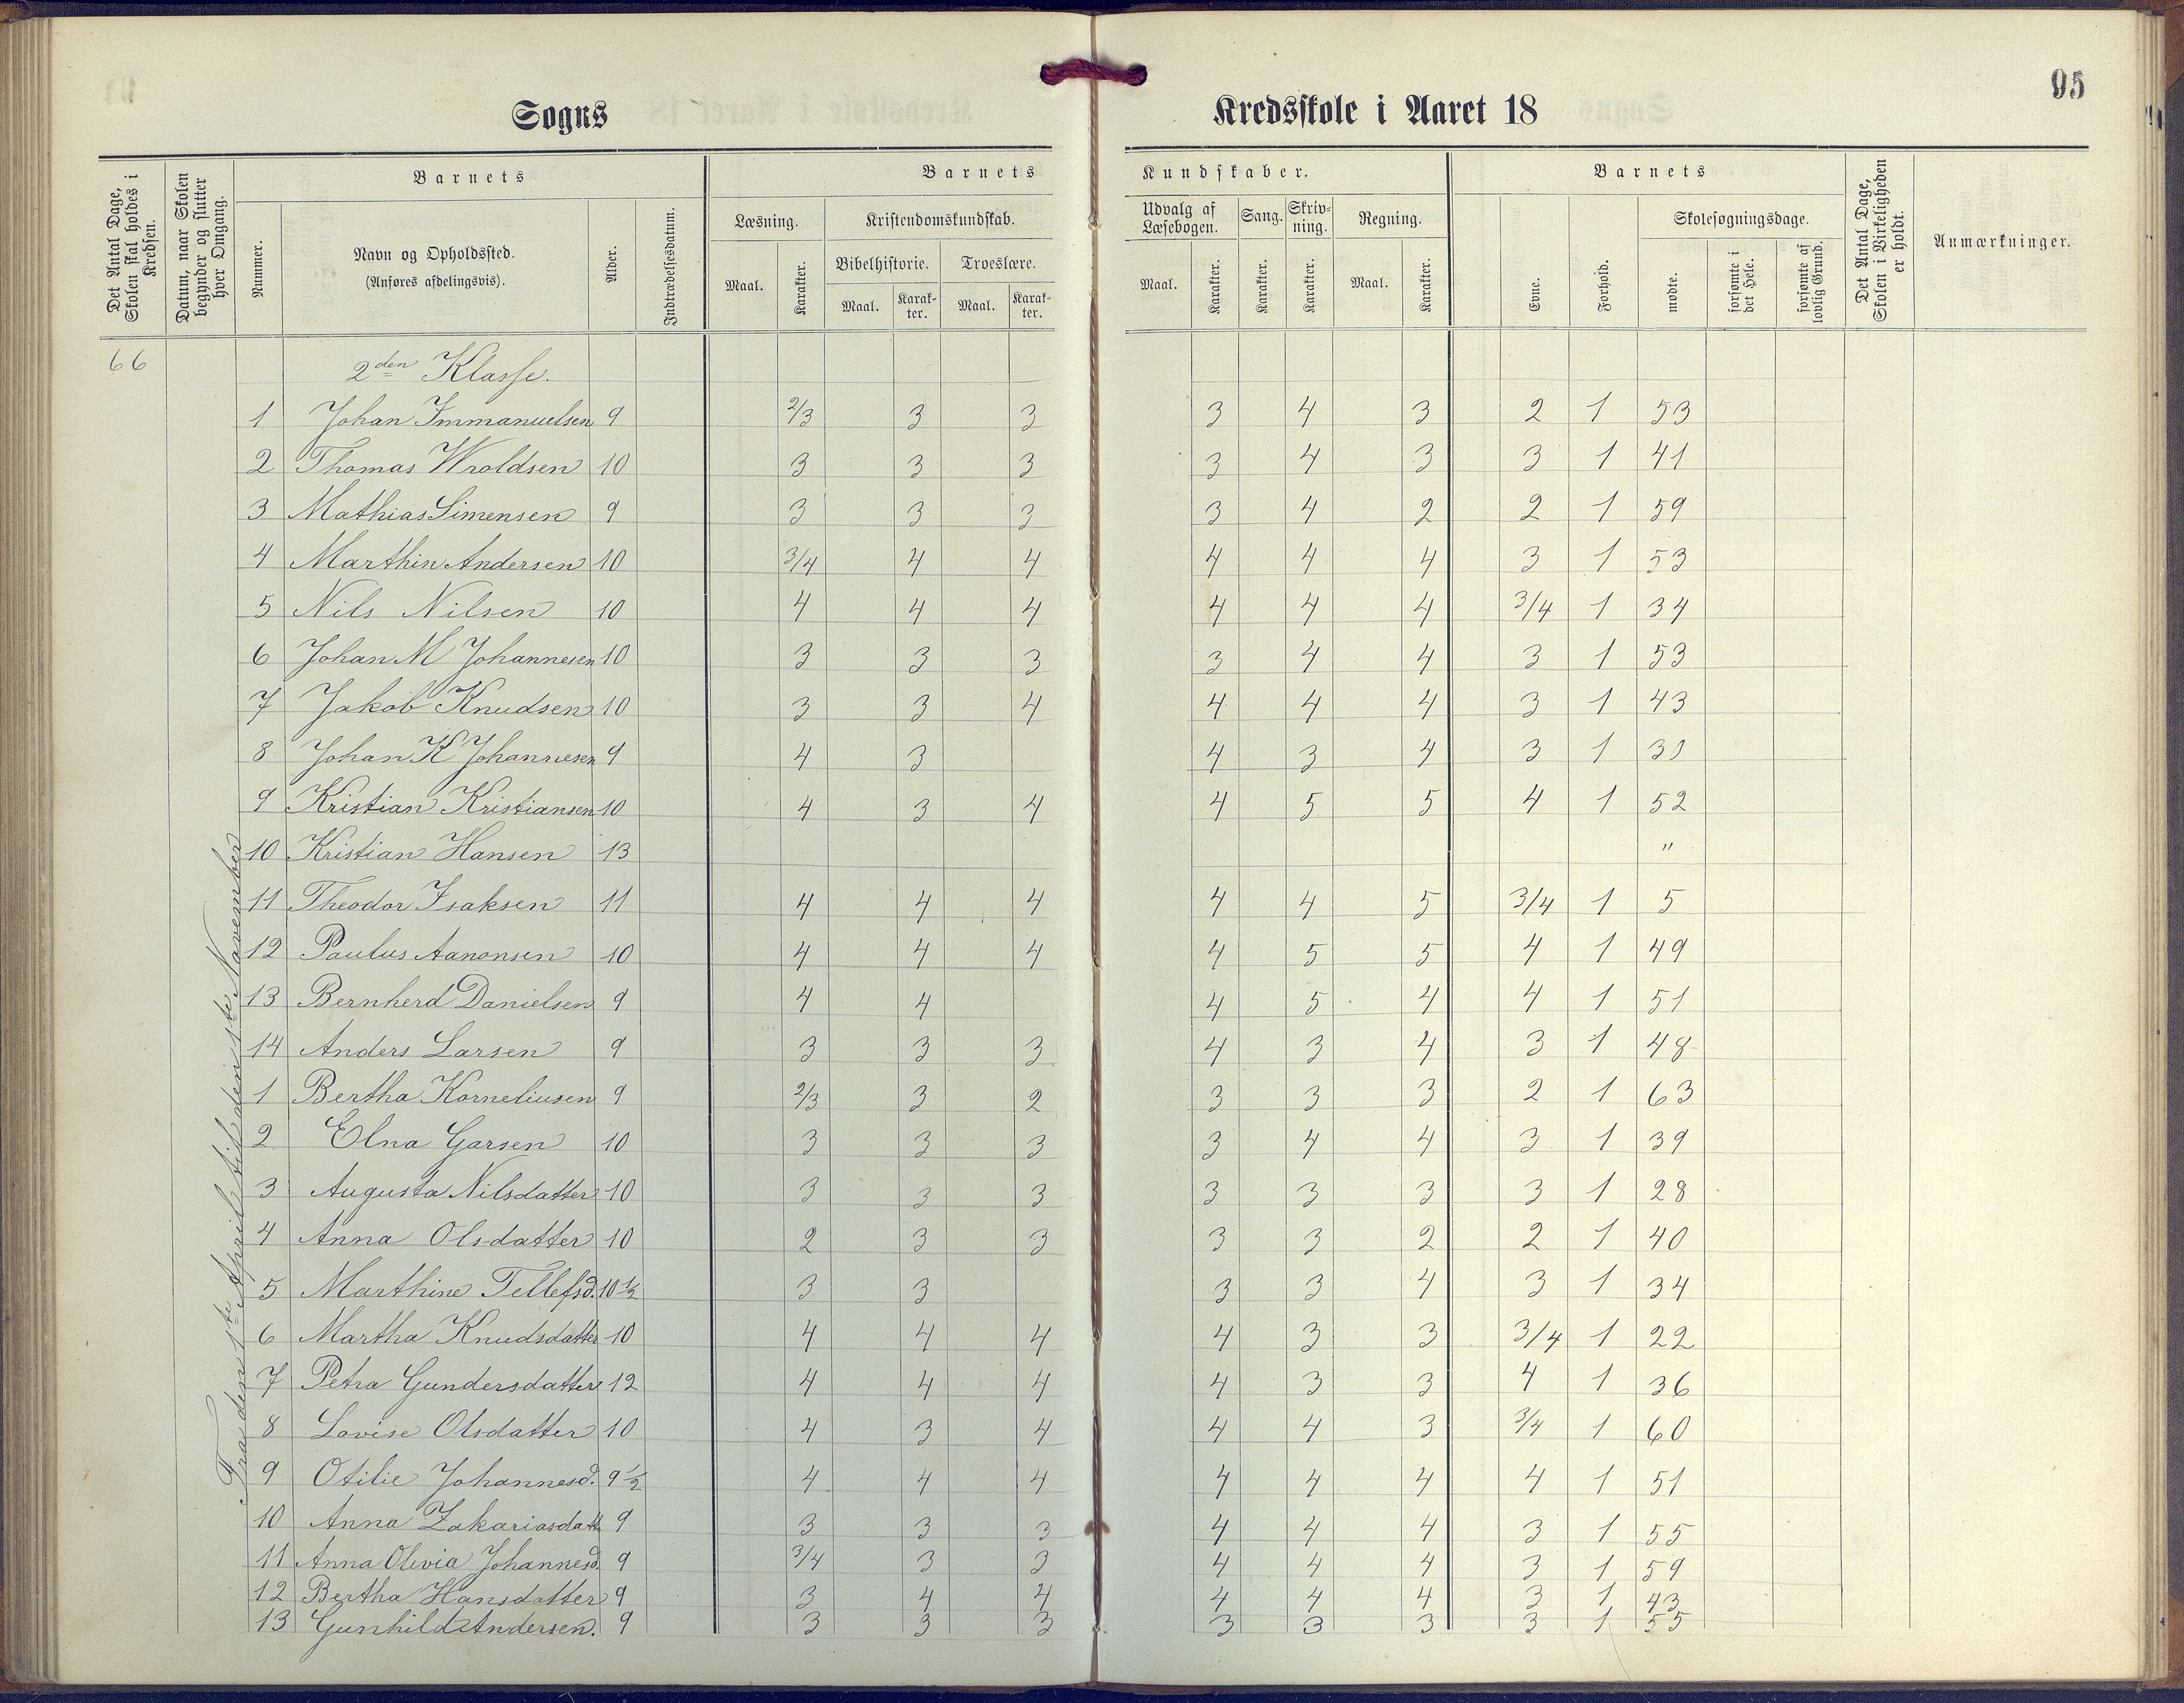 95
Sogns Kredsskole i Aaret 18
Det Antal Dage, Skolen skal holdes i Kredsen.
Datum, naar Skolen begynder og slutter hver Omgang.
Barnets
Nummer.
Navn og Opholdssted.
(Anføres afdelingsvis).
Alder.
Indtrædelsesdatum.
Barnets Kundskaber.
Læsning.
Maal.
Karakter.
Kristendomskundskab.
Bibelhistorie.
Maal.
Karakter.
Troeslære.
Maal.
Karakter.
Udvalg af Læsebogen.
Maal.
Karakter.
Sang.
Karakter.
Skrivning.
Karakter.
Regning.
Maal.
Karakter.
Barnets
Evne.
Forhold.
Skolesøgningsdage.
mødte.
forsømte i det Hele.
forsømte af lovlig Grund.
Det Antal Dage, Skolen i Virkeligheden er holdt.
Anmærkninger.
66
Fra den 1ste April til den 1ste November
2den Klasse.
1 Johan Immanuelsen 9 2/3 3 3 3 4 3 2 1 53
2 Thomas Wroldsen 10 3 3 3 3 4 3 3 1 41
3 Mathias Simensen 9 3 3 3 3 4 2 2 1 59
4 Marthin Andersen 10 3/4 4 4 4 4 4 3 1 53
5 Nils Nilsen 10 4 4 4 4 4 4 3/4 1 34
6 Johan M Johannesen 10 3 3 3 3 4 4 3 1 53
7 Jakob Knudsen 10 3 3 4 4 4 4 3 1 43
8 Johan K Johannesen 9 4 3 4 3 4 3 1 30
9 Kristian Kristiansen 10 4 3 4 4 5 5 4 1 52
10 Kristian Hansen 13 "
11 Theodor Isaksen 11 4 4 4 4 4 5 3/4 1 5
12 Paulus Aanonsen 10 4 4 4 4 5 5 4 1 49
13 Bernherd Danielsen 9 4 4 4 5 4 4 1 51
14 Anders Larsen 9 3 3 3 4 3 4 3 1 48
1 Bertha Korneliusen 9 2/3 3 2 3 3 3 2 1 63
2 Elna Garsen 10 3 3 3 3 4 4 3 1 39
3 Augusta Nilsdatter 10 3 3 3 3 3 3 3 1 28
4 Anna Olsdatter 10 2 3 3 3 3 2 2 1 40
5 Marthine Tellefsd. 10 1/2 3 3 3 3 4 3 1 34
6 Martha Knudsdatter 10 4 4 4 4 3 3 3/4 1 22
7 Petra Gundersdatter 12 4 4 4 4 3 3 4 1 36
8 Lovise Olsdatter 10 4 3 4 4 4 3 3/4 1 60
9 Otilie Johannesd. 9 1/2 4 4 4 4 4 4 4 1 51
10 Anna Zakariasdatt. 9 3 3 3 4 4 4 3 1 55
11 Anna Olivia Johannesd. 9 3/4 3 3 4 4 4 3 1 59
12 Bertha Hansdatter 9 3 4 4 4 4 4 3 1 43
13 Gunhild Andersen. 9 3 3 3 3 3 3 3 1 55